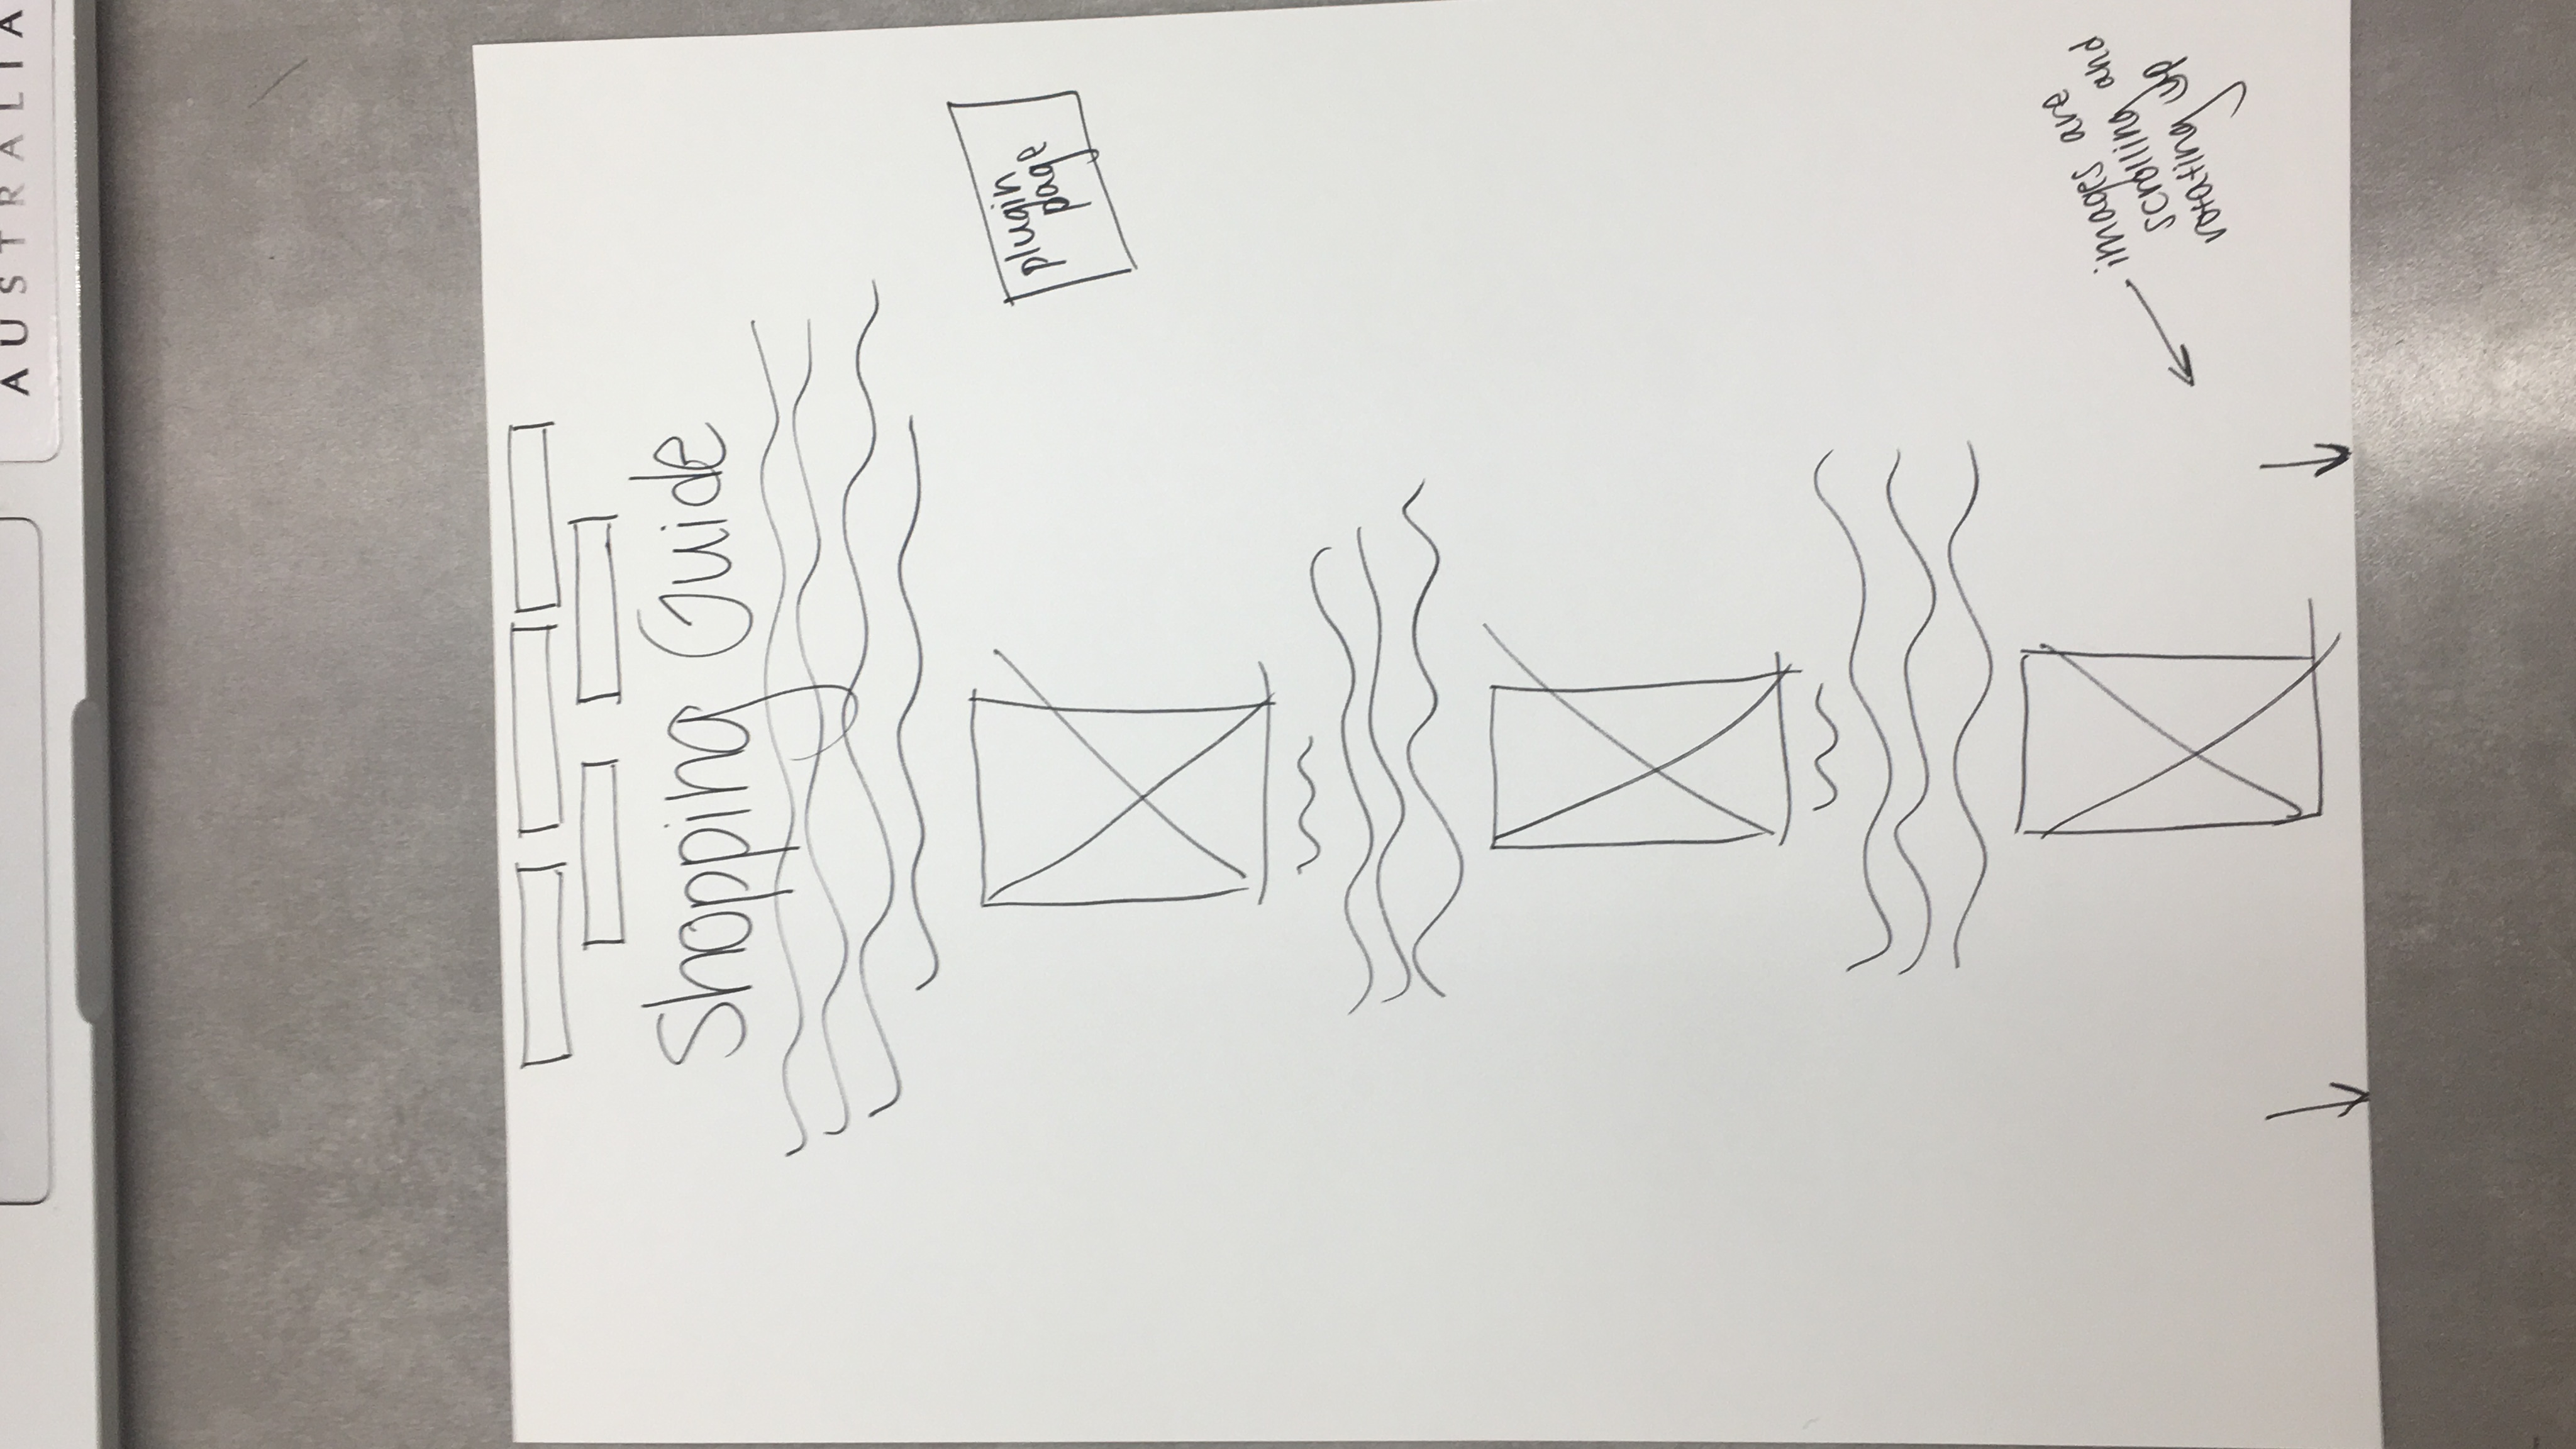 AUSTRALIA
Shopping Guide
plugin
page
images are
scrolling and
rotating up